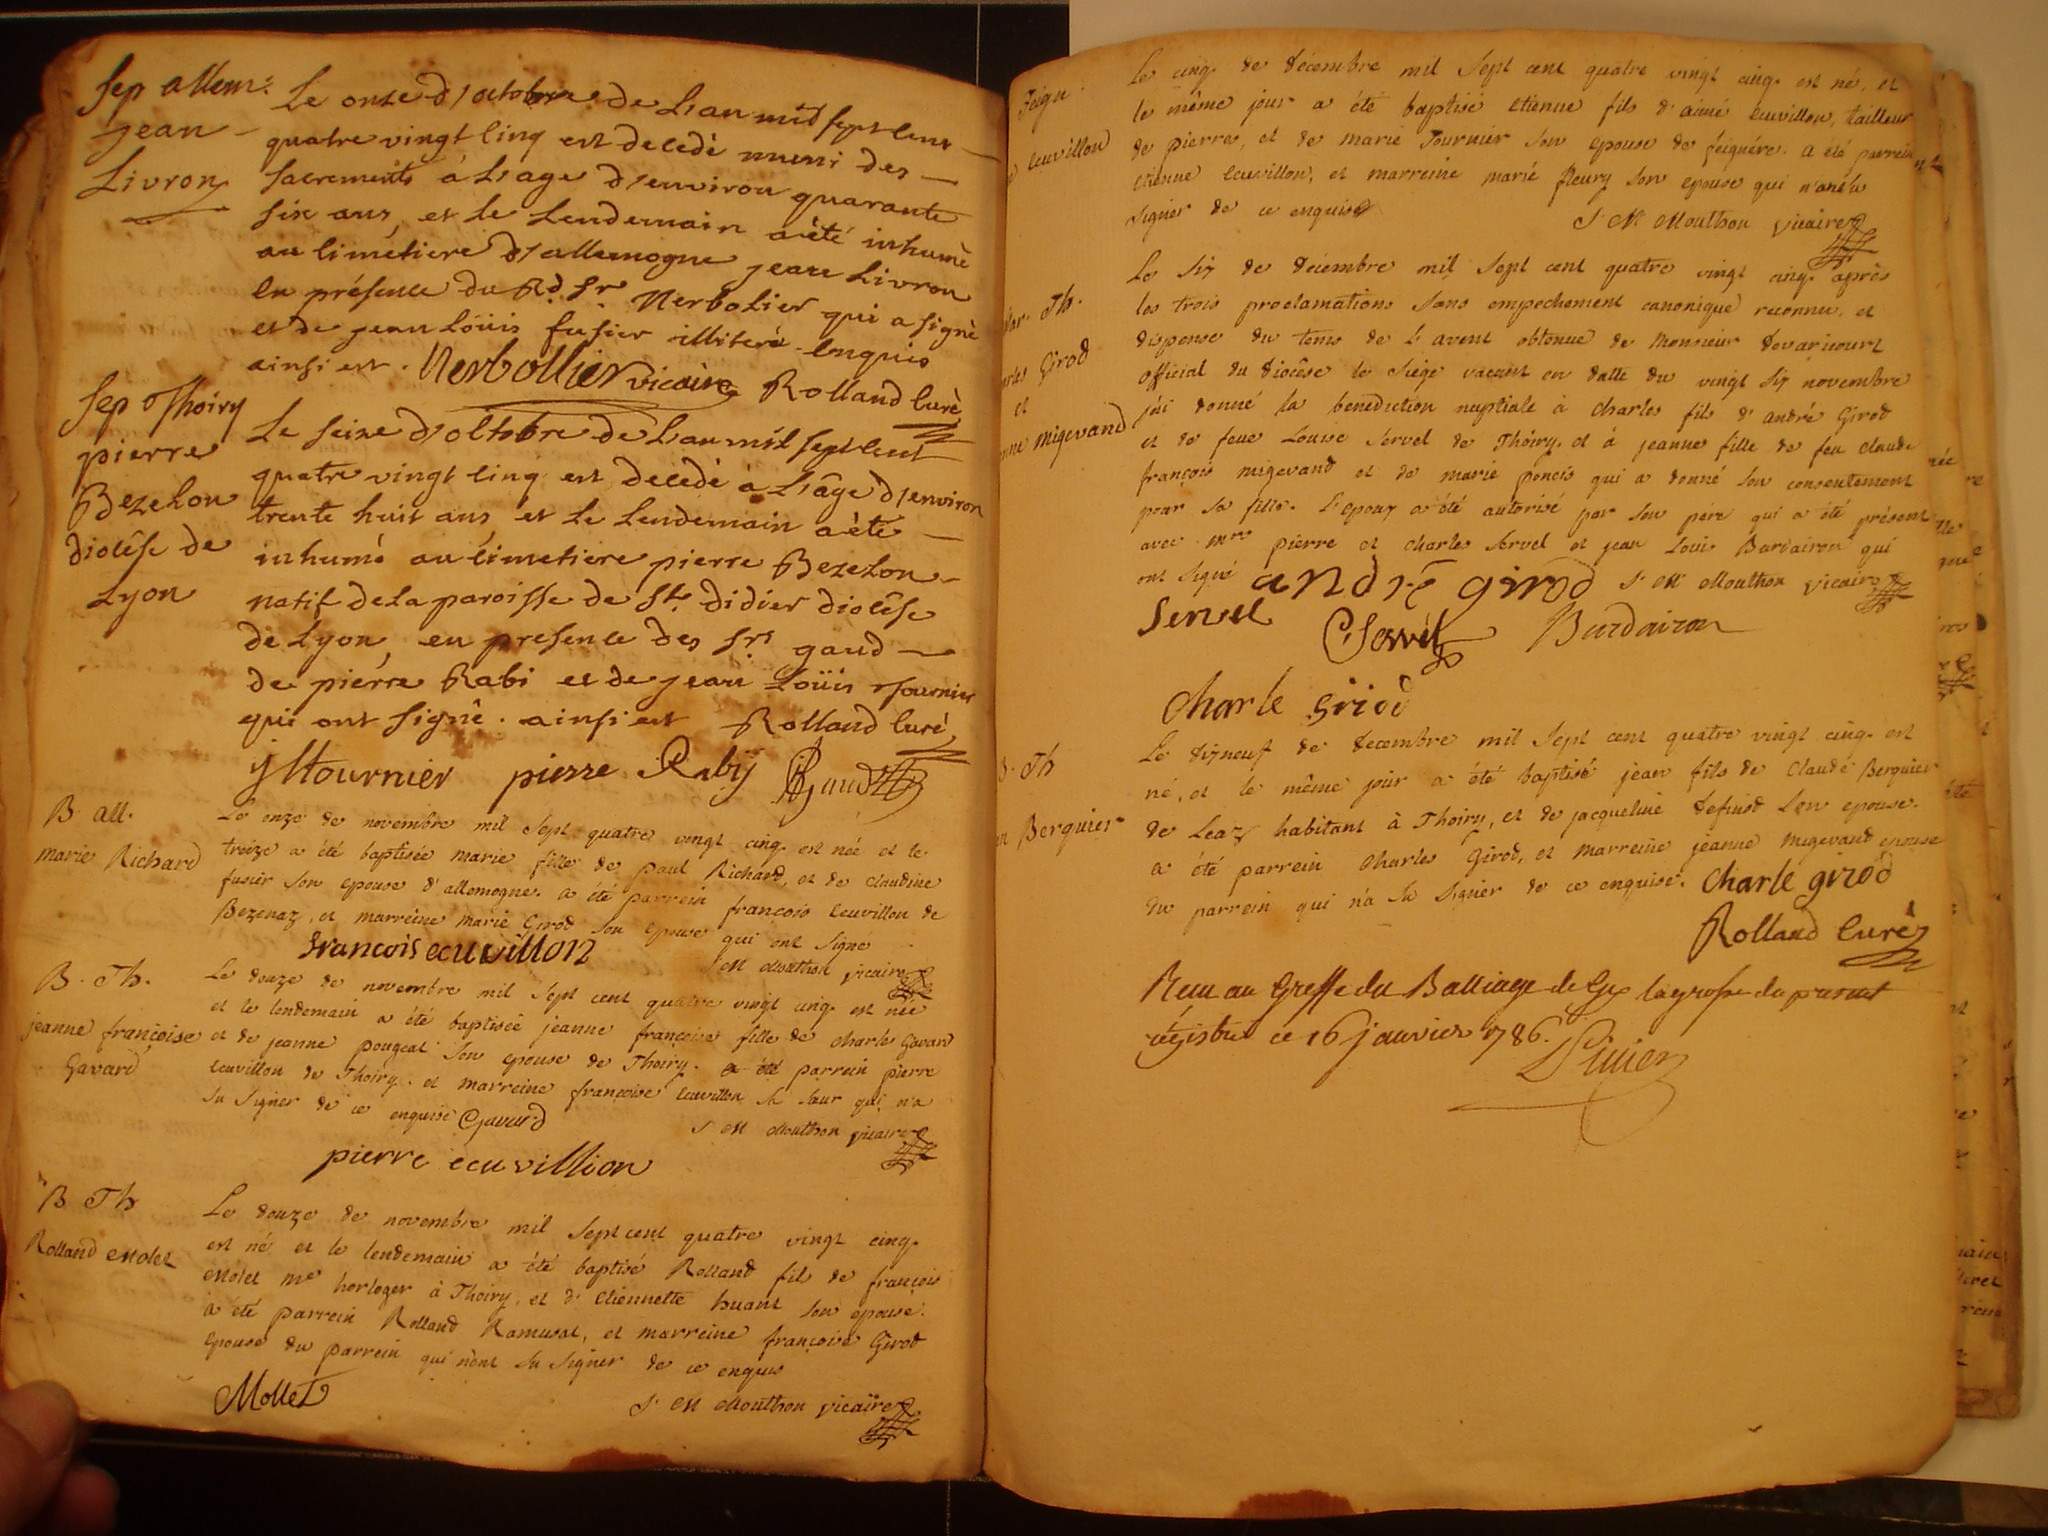 Sep allem:
jean
Livron
Le onze d'octobre de L'an mil sept cent
quatre vingt cinq est decedé muni des
sacrements á L'age d'environ quarante
six ans, et le Lendemain a été inhumé
au cimétiere d'allemogne jean Livron
en présence du Rd. Sr. Nerbolier qui a signé
et de jean Loüis fusier illiteré enquis
ainsi est. Nerbollier vicaire Rolland Curé
Sep Thoiry
pierre
Bezehon
diocêse de
Lyon
Le seize d'octobre de L'an mil sept cent
quatre vingt cinq est decedé à L'âge d'environ
trente huit ans, et Le Lendemain a été
inhumé au cimetiere pierre Bezehon
natif de La paroisse de St. didier diocêse
de Lyon, en presence des Srs gaud
de piérre Rabi et de jean Loüis tournier
qui ont signé. ainsi est Rolland Curé
jltournier pierre Raby Gaud
B. all.
marie Richard
Le onze de novembre mil sept quatre vingt cinq. est née et le
treize a été baptisée marie fille de paul Richard, et de claudine
fusier son epouse d'allemogne. a été parrein françois ecuvillon de
Bezenaz, et marreine marie Girod son epouse qui ont signé
francois ecuvillon
S. M Mouthon vicaire
B. Th.
jeanne françoise
Gavard
Le douze de novembre mil sept cent quatre vingt cinq. est née
et le lendemain a été baptisée jeanne françoise fille de charles Gavard
et de jeanne pougeat son epouse de Thoiry. a été parrein pierre
ecuvillon de Thoiry. et marreine françoise ecuvillon sa sœur qui n'a
su signer de ce enquise CGavard
S. M Mouthon vicaire
pierre ecuvillion
B Th
Rolland Molet
Le douze de novembre mil sept cent quatre vingt cinq.
est né et le lendemain a été baptisé Rolland fils de françois
Molet me horloger à Thoiry, et d'etiennette huant son epouse.
a été parrein Rolland Ramusat, et marreine françoise Girod
epouse du parrein qui n'ont su signer de ce enquis
Mollet
S. M Mouthon vicaire
feign.
ecuvillon
Le cinq. de décembre mil sept cent quatre vingt cinq. est né, et
le même jour a été baptisé etienne fils d'aimé ecuvillon, tailleur
de pierre, et de marie Tournier son epouse de feignére. a été parrein
etienne ecuvillon, et marreine marié fleury son epouse qui n'ont su
signer de ce enquis
S. M. Mouthon vicaire
mar. Th.
charles Girod
et
jeanne migevand
Le six de decembre mil sept cent quatre vingt cinq. après
les trois proclamations sans empechement canonique reconnu, et
dispense du tems de L'avent obtenue de Monsieur devaricourt
official du diocêse le siége vacant en datte du vingt six novembre
j'ai donné la benediction nuptiale à charles fils d'andré Girod
et de feue Louise Servel de Thoiry. et à jeanne fille de feu claude
françois migevand et de marie poncis qui a donné son consentement
pour sa fille. L'epoux a été autorisé par son pere qui a été présent
avec mrs pierre et charles Servel et jean Louis Bardairon qui
ont signé andré girod S. M. Mouthon vicaire
Servel C Servel Burdairon
Charle Girod
B. Th
Berguier
Le dixneuf de decembre mil sept cent quatre vingt cinq. est
né, et le même jour a été baptisé jean fils de claude Berguier
de Leaz habitant à Thoiry, et de jacqueline defniod son epouse.
a été parrein charles Girod, et marreine jeanne migevand epouse
du parrein qui n'a su signer de ce enquise. Charle girod
Rolland Curé
Reçu au Greffe du Balliage de Gex la grosse du présent
régistre ce 16 janvier 1786.